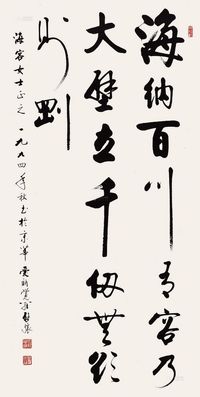 海纳百川有容乃
大壁立千仞无欲
则刚
海容女士正之 一九八四年秋书于京华 爱新觉罗